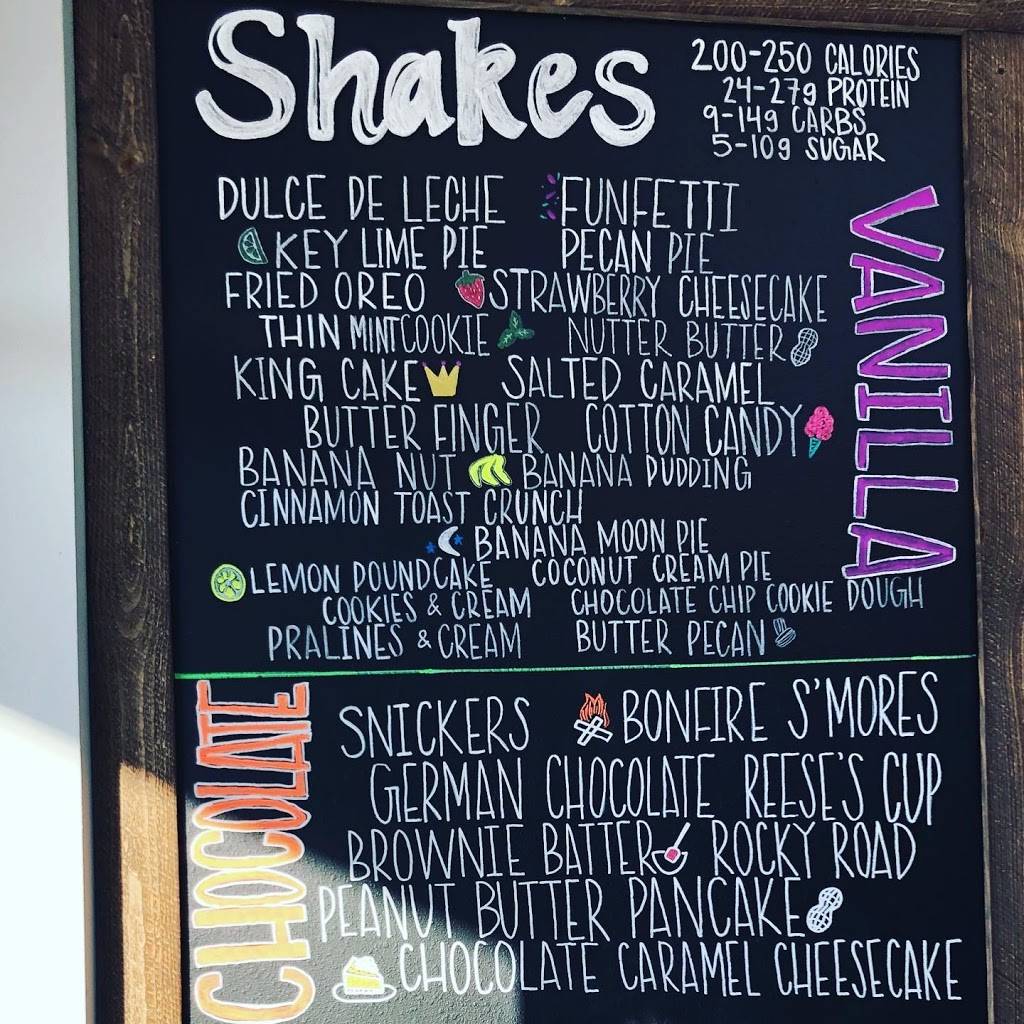 Shakes
200-250 CALORIES
24-27g PROTEIN
9-14g CARBS
5-10g SUGAR
VANILLA
DULCE DE LECHE FUNFETTI
KEY LIME PIE PECAN PIE
FRIED OREO STRAWBERRY CHEESECAKE
THIN MINT COOKIE NUTTER BUTTER
KING CAKE SALTED CARAMEL
BUTTER FINGER COTTON CANDY
BANANA NUT BANANA PUDDING
CINNAMON TOAST CRUNCH
BANANA MOON PIE
LEMON POUNDCAKE COCONUT CREAM PIE
COOKIES & CREAM CHOCOLATE CHIP COOKIE DOUGH
PRALINES & CREAM BUTTER PECAN
CHOCOLATE
SNICKERS BONFIRE S'MORES
GERMAN CHOCOLATE REESE'S CUP
BROWNIE BATTER ROCKY ROAD
PEANUT BUTTER PANCAKE
CHOCOLATE CARAMEL CHEESECAKE